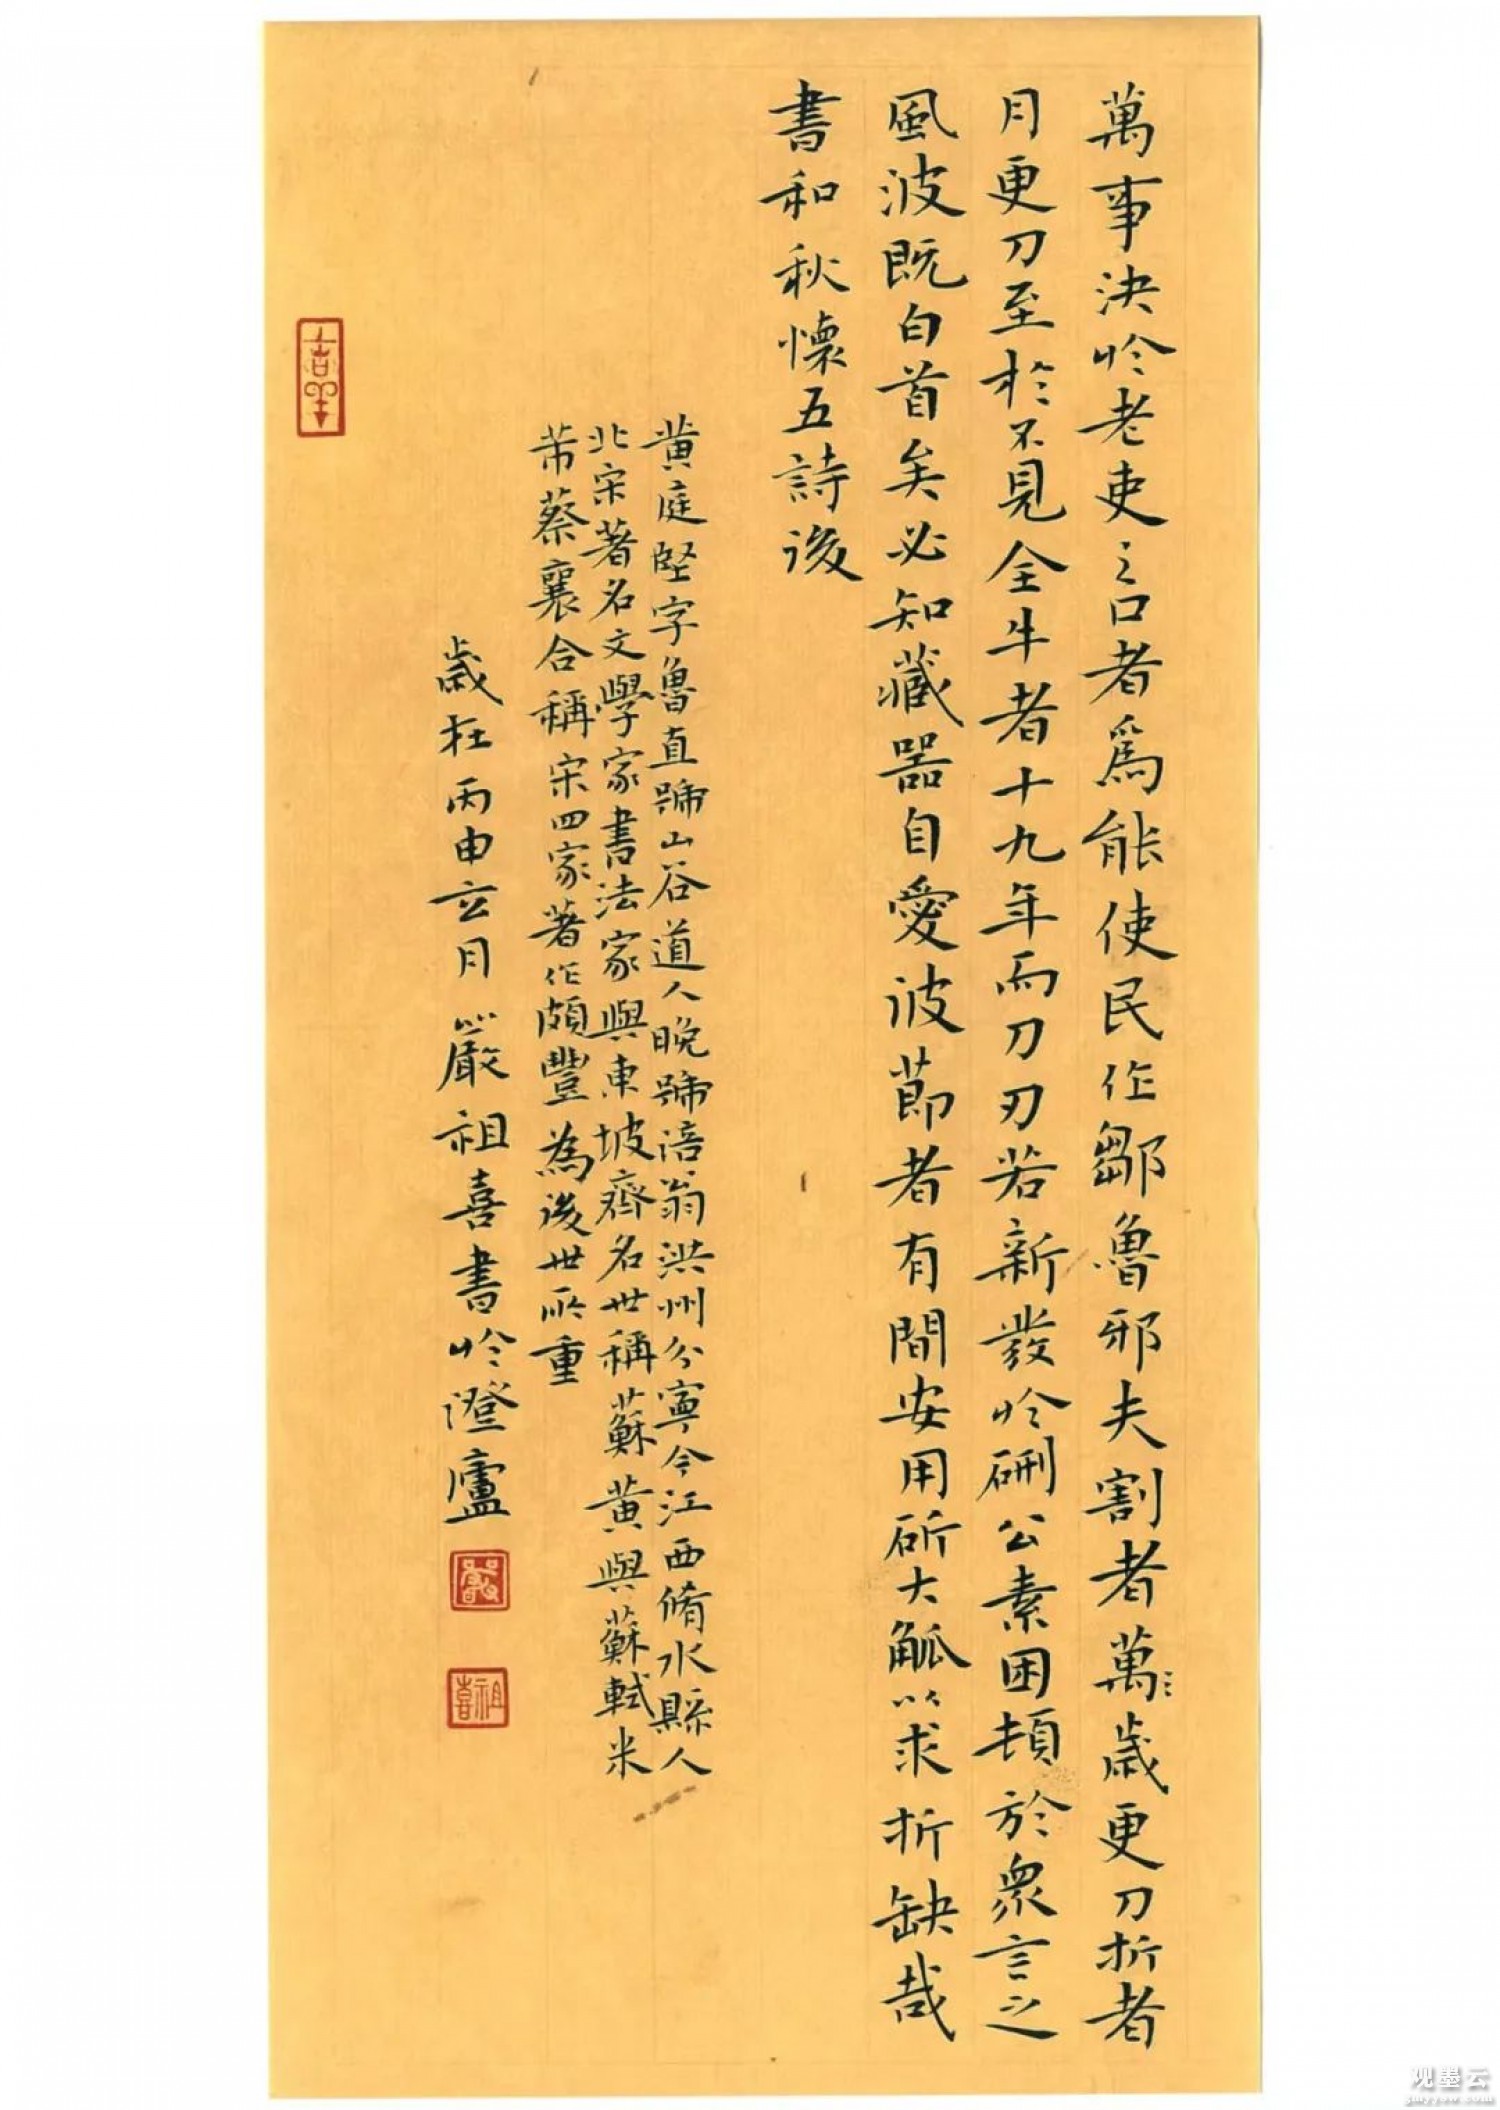 萬事決於老吏之口者為能使民作鄒魯邪夫割者萬〻歲更刀折者
月更刀至於不見全牛者十九年而刀刃若新發於硎公素困頓於眾言之
風波既白首矣必知藏器自愛彼節者有間安用斫大觚以求折缺哉
書和秋懷五詩後
黃庭堅字魯直號山谷道人晚號涪翁洪州分寧今江西脩水縣人
北宋著名文學家書法家與東坡齊名世稱蘇黃與蘇軾米
芾蔡襄合稱宋四家著作頗豐為後世所重
歲在丙申玄月嚴祖喜書於澄廬
嚴
祖喜
观墨云
gmyyun.com